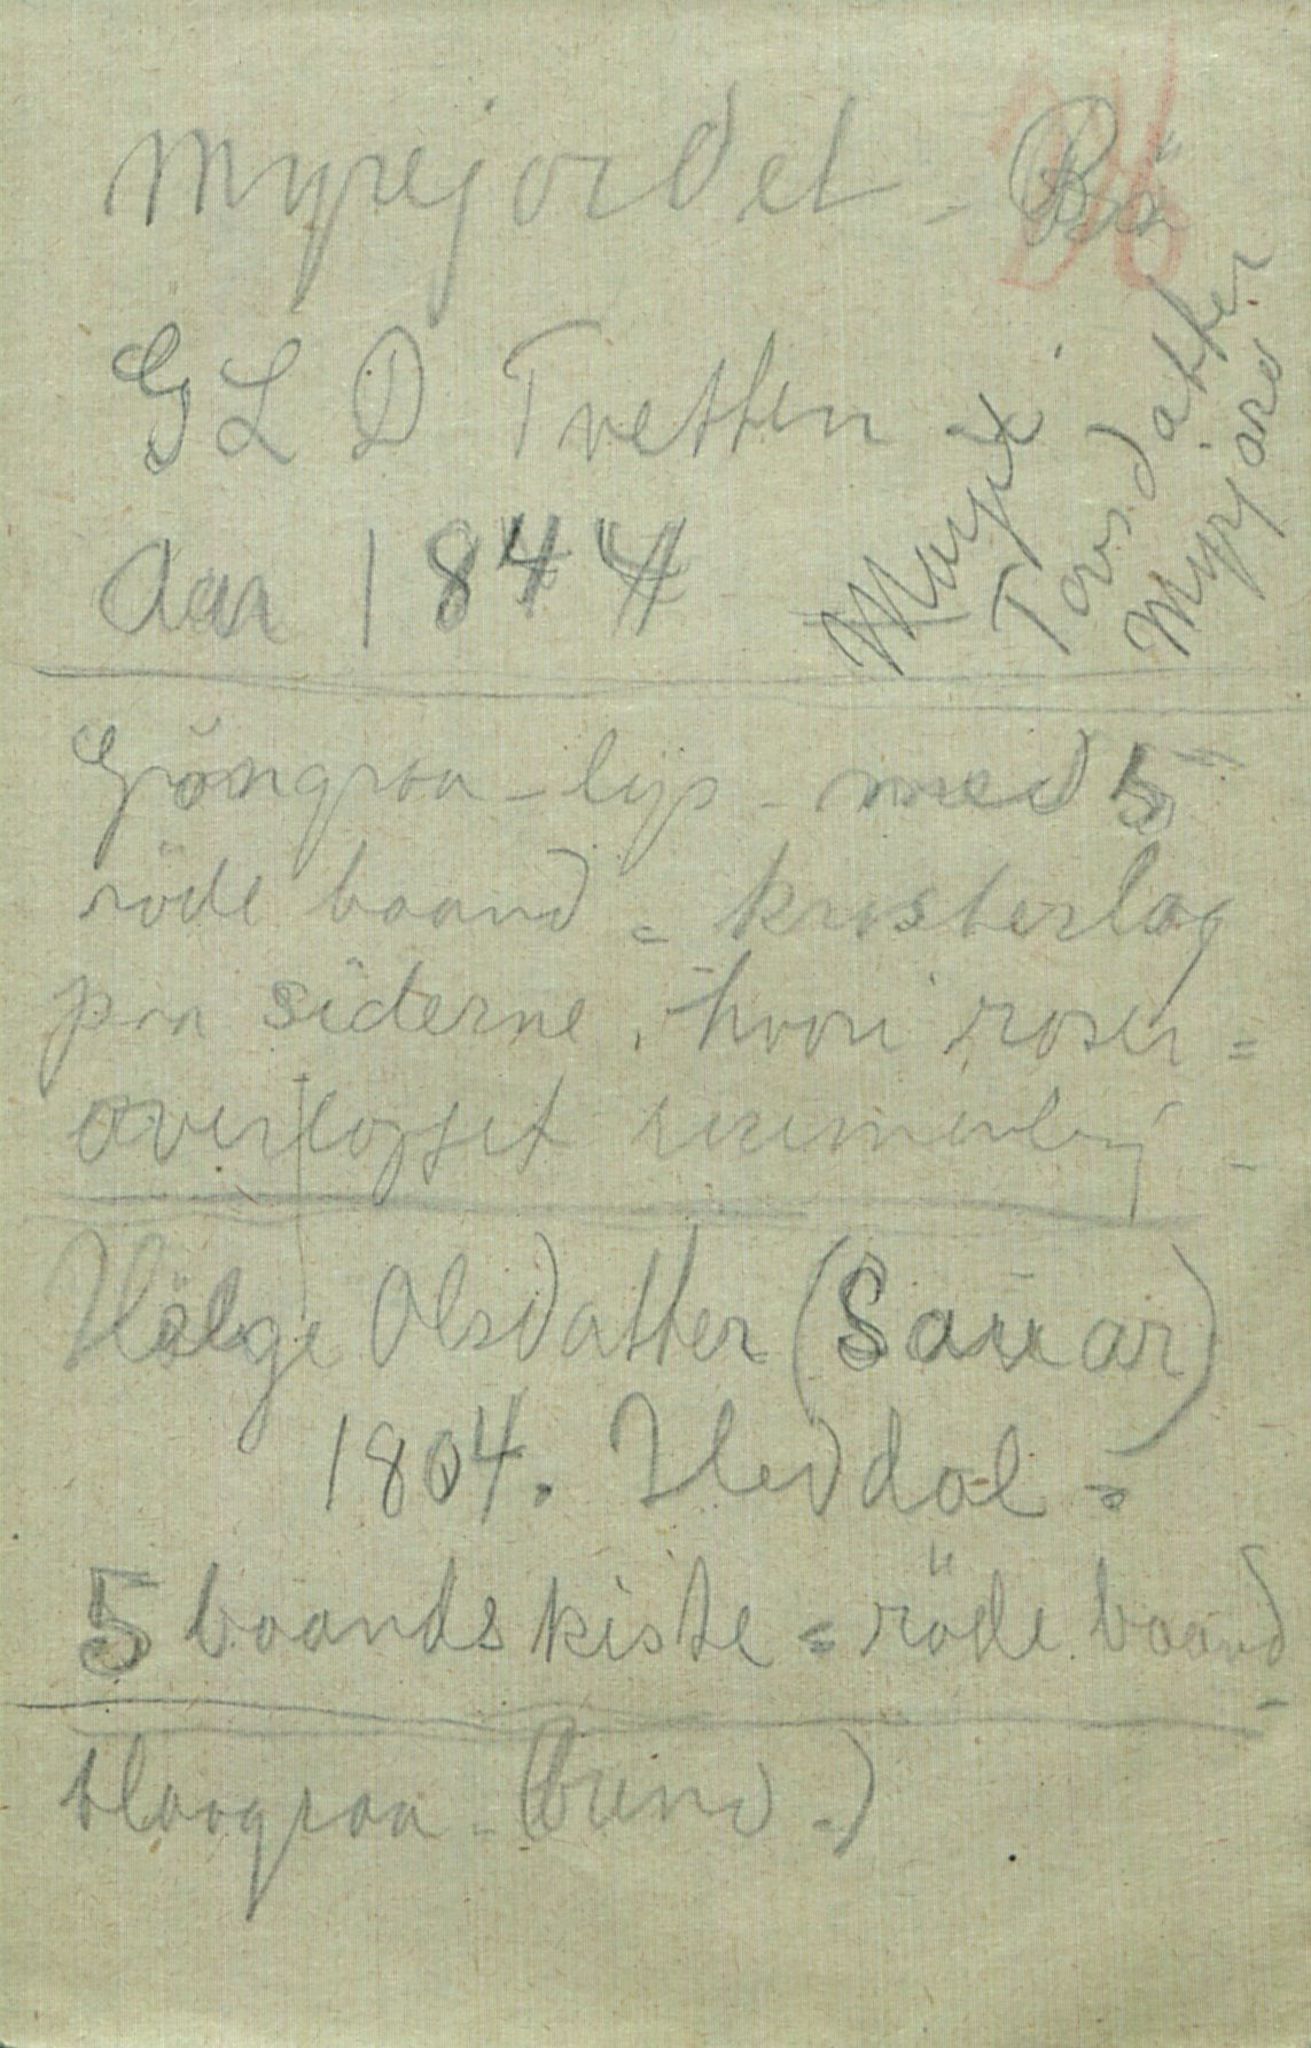 Myrejordet - Bö
G L D Tvetten
Aar 1844
Margit
Tovsdatter
Myrjord
Gröngraa - lys - med 5
röde baand = krusterlag
paa siderne, hvori roser =
Helge Olsdatter (Sauar)
1804. Heddal =
5 baands kiste = röde baand
blaagraa - (bund.)